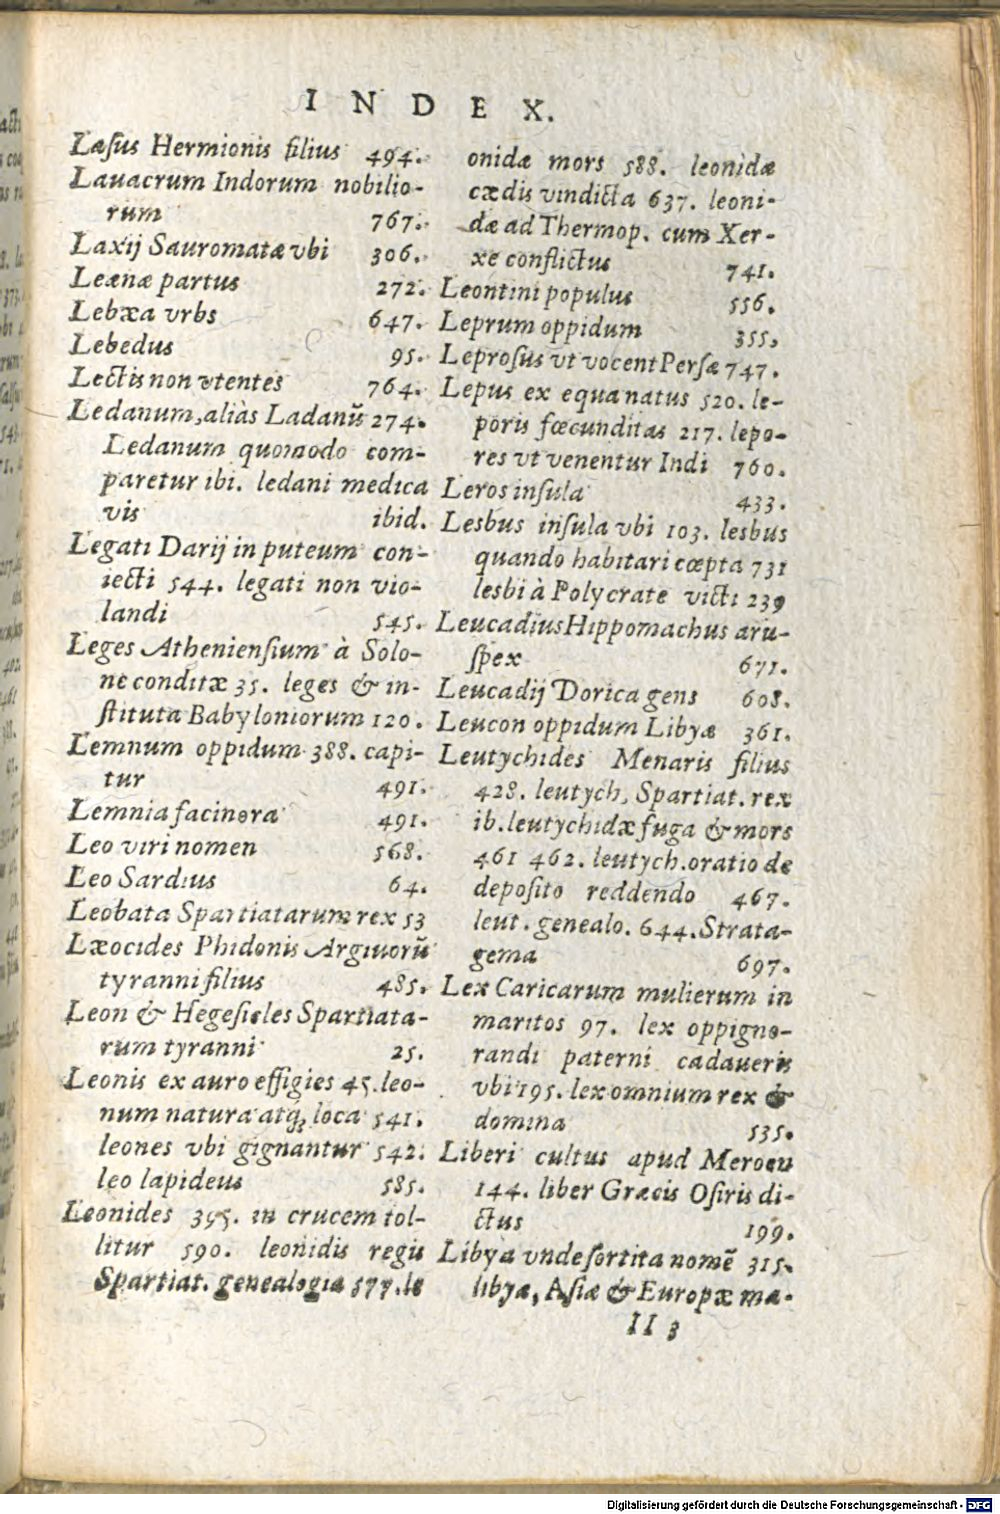 INDEX.
Lasus Hermionis filius 494.
Lauacrum Indorum nobilio-
rum 767.
Laxij Sauromatæ vbi 306.
Leænæ partus 272.
Lebæa vrbs 647.
Lebedus 95.
Lectis non vtentes 764.
Ledanum, aliàs Ladanū 274.
Ledanum quomodo com-
paretur ibi. ledani medica
vis ibid.
Legati Darij in puteum con-
iecti 544. legati non vio-
landi 545.
Leges Atheniensium à Solo-
ne conditæ 35. leges & in-
stituta Babyloniorum 120.
Lemnum oppidum 388. capi-
tur 491.
Lemnia facinora 491.
Leo viri nomen 568.
Leo Sardius 64.
Leobata Spartiatarum rex 53
Læocides Phidonis Argiuorū
tyranni filius 485.
Leon & Hegesicles Spartiata-
rum tyranni 25.
Leonis ex auro effigies 45. leo-
num natura atq; loca 541.
leones vbi gignantur 542.
leo lapideus 585.
Leonides 395. in crucem tol-
litur 590. leonidis regis
Spartiat. genealogia 577. le
onidæ mors 588. leonidæ
cædis vindicta 637. leoni-
dæ ad Thermop. cum Xer-
xe conflictus 741.
Leontini populus 556.
Leprum oppidum 355,
Leprosus vt vocent Persæ 747.
Lepus ex equa natus 520. le-
poris fœcunditas 217. lepo-
res vt venentur Indi 760.
Leros insula 433.
Lesbus insula vbi 103. lesbus
quando habitari cœpta 731
lesbi à Polycrate victi 239
Leucadius Hippomachus aru-
spex 671.
Leucadij Dorica gens 608.
Leucon oppidum Libyæ 361.
Leutychides Menaris filius
428. leutych, Spartiat. rex
ib. leutychidæ fuga & mors
461 462. leutych. oratio de
deposito reddendo 467.
leut. genealo. 644. Strata-
gema 697.
Lex Caricarum mulierum in
maritos 97. lex oppigno-
randi paterni cadaueris
vbi 195. lex omnium rex &
domina 535.
Liberi cultus apud Meroen
144. liber Græcis Osiris di-
ctus 199.
Libya vnde sortita nomē 315.
libyæ, Asiæ & Europæ ma-
II 3
Digitalisierung gefördert durch die Deutsche Forschungsgemeinschaft - DFG